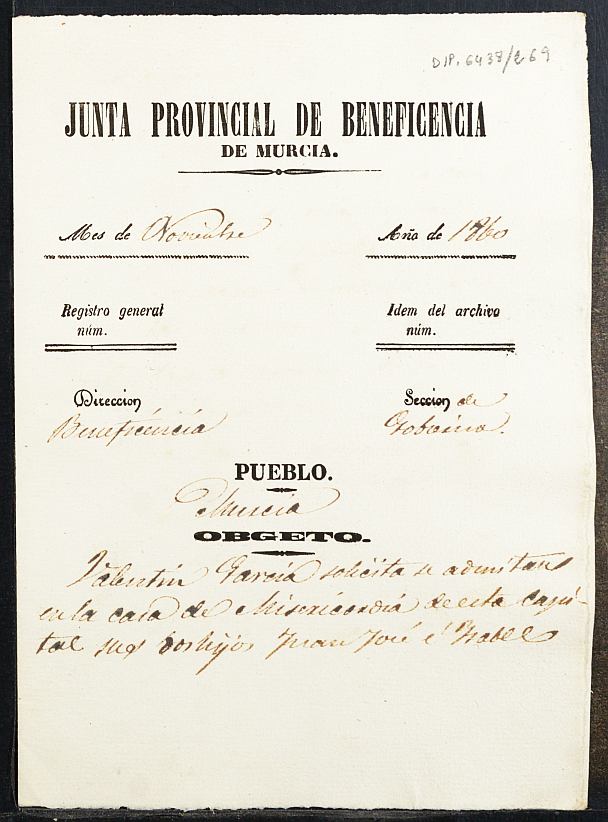 DIP. 6438/269
JUNTA PROVINCIAL DE BENEFICENCIA
DE MURCIA.
Mes de Noviembre
Año de 1860
Registro general
núm.
Idem del archivo
núm.
Direccion
Beneficéncia
Seccion de
Gobierno.
PUEBLO.
Murcia
OBGETO.
Valentin García solicita se admitan
en la casa de Misericordia de esta Capi-
tal sus dos hijos Juan José é Isabel